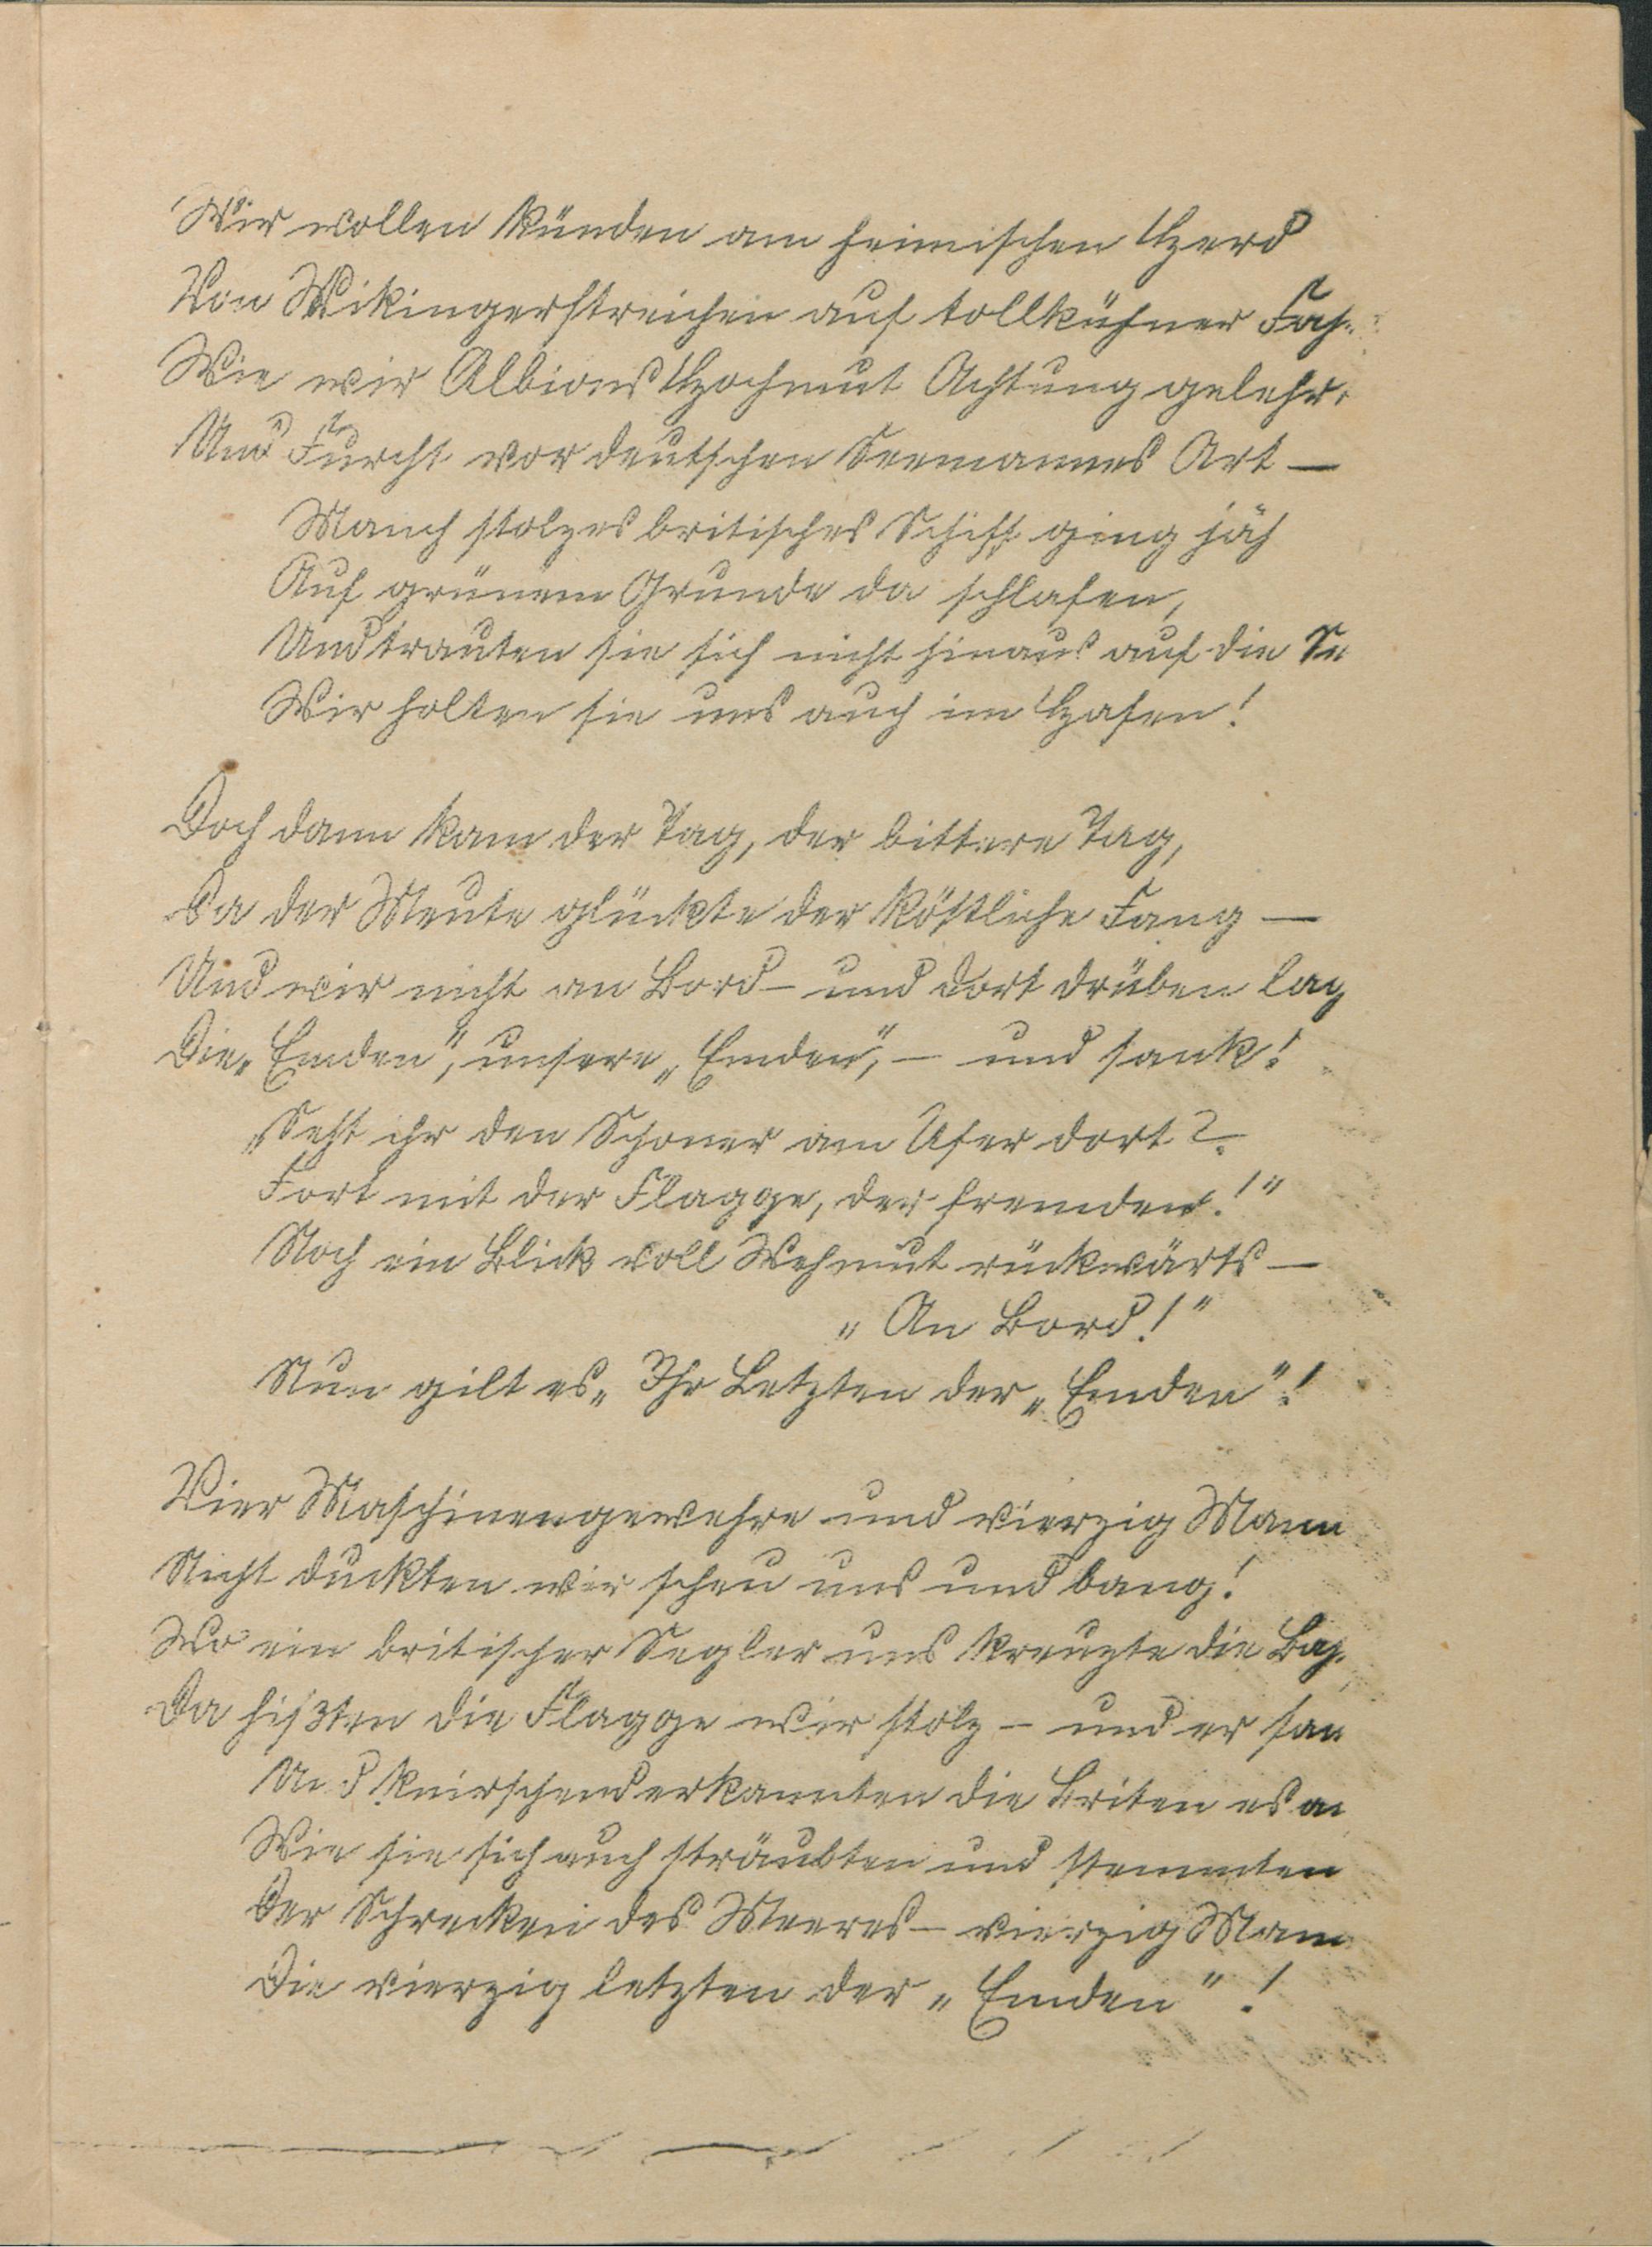 Wir wollen künden am heimischen Herd
Von Wikingerstreichen auf tollkühner Fah
Wie wir Albions Hochmut Achtung gelehr
Und Furcht vor deutschen Seemannes Art —
Manch stolzes britisches Schiff ging jäh
Auf grünem Grunde da schlafen,
Und trauten sie sich nicht hinaus auf die Se
Wir holten sie uns auch im Hafen!
Doch dann kam der Tag, der bittere Tag,
Da der Meute glückte der köstliche Fang —
Und wir nicht an Bord – und dort drüben lag
Die „Emden", unsere „Emden", – und sank!
„Seht ihr den Schoner am Ufer dort?
Fort mit der Flagge, der fremden!"
Noch ein Blick voll Wehmut rückwärts —
„An Bord!"
Nun gilt es, Ihr Letzten der „Emden"!
Vier Maschinengewehre und vierzig Mann
Nicht duckten wir scheu uns und bang!
Wo ein britischer Segler uns kreuzte die Bah
Da hißten die Flagge wir stolz – und er san
Und knirschend erkannten die Briten es an
Wie sie sich auch sträubten und stemmten
Der Schrecken des Meeres – vierzig Mann
Die vierzig letzten der „Emden"!